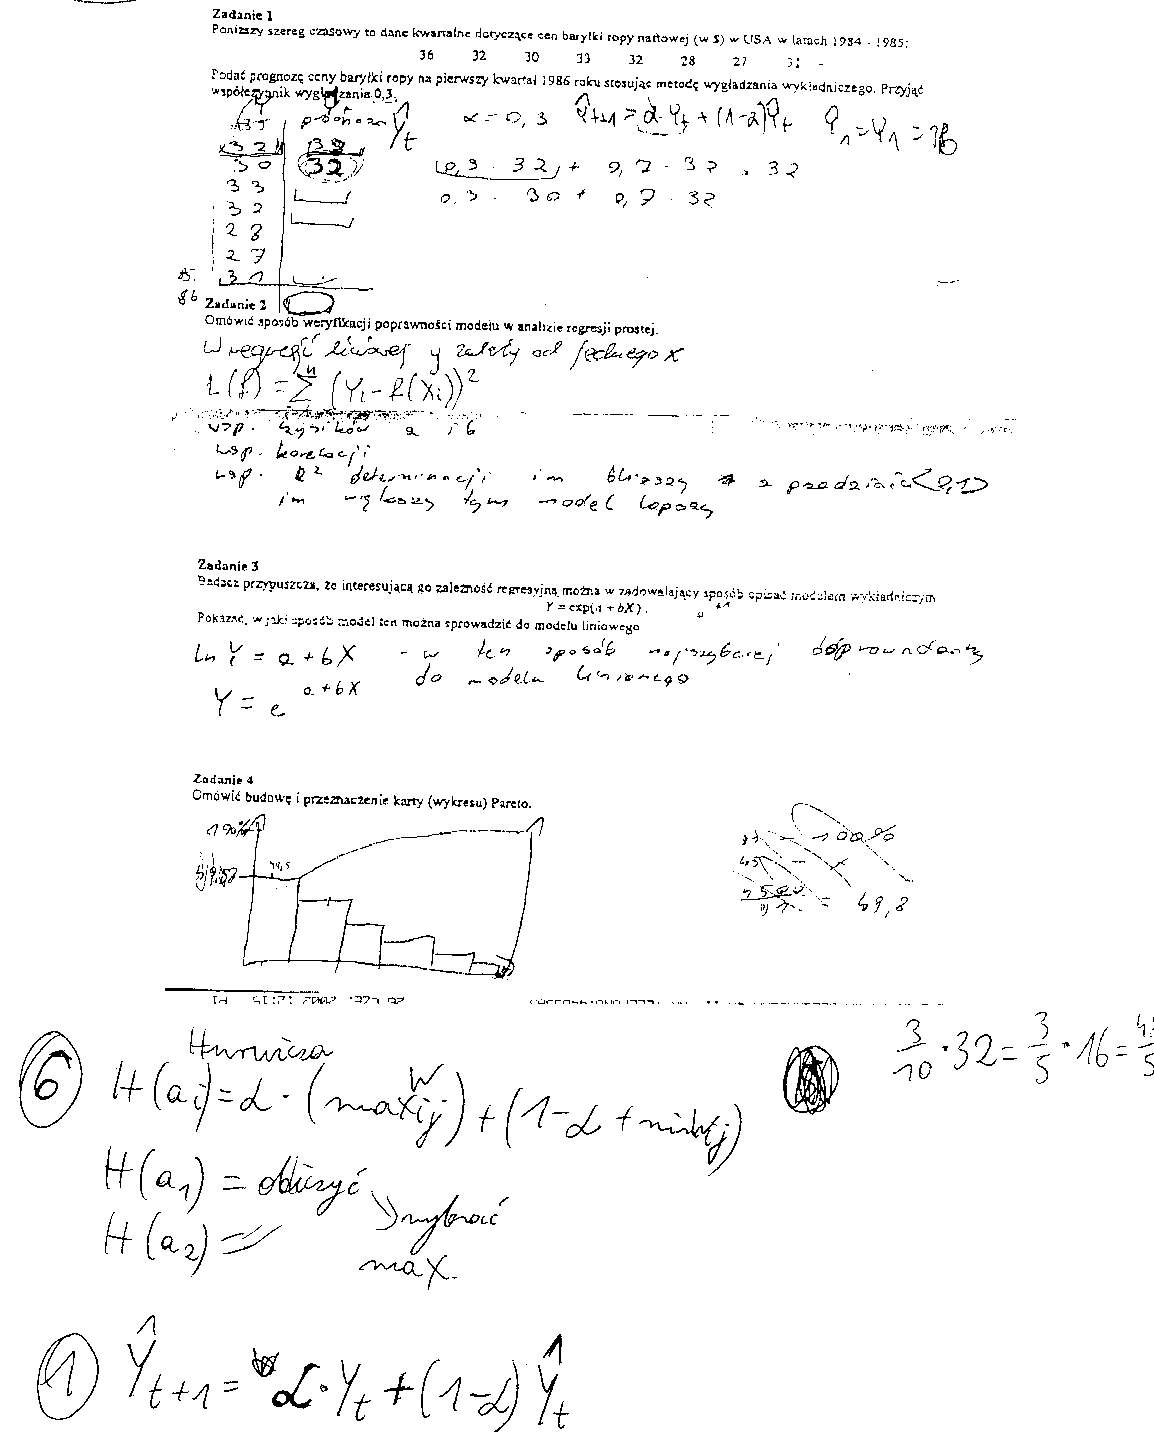 Zadanie 1
Poniższy szereg czasowy to dane kwartalne dotyczące cen baryłki ropy naftowej (w $) w USA w latach 1984 - 1985:
36 32 30 33 32 28 27 31
Podać prognozę ceny baryłki ropy na pierwszy kwartał 1986 roku stosując metodę wygładzania wykładniczego. Przyjąć
współczynnik wygładzania 0,3.
α = 0,3 Ŷt+1 = α Yt + (1-α)Ŷt Ŷ1 = Y1 = 36
32
30 32 0,3 · 32 + 0,7 · 32 = 32
33 0,3 · 30 + 0,7 · 32
32
28
27
85. 31
86
Zadanie 2
Omówić sposób weryfikacji poprawności modelu w analizie regresji prostej.
W regresji liniowej y zależy od jednego x
L(f) = Σ (Yi - f(Xi))²
wsp. a i b
wsp. korelacji
wsp. R² determinacji im bliższy z przedziału <0,1>
im większy tym model lepszy
Zadanie 3
Badacz przypuszcza, że interesującą go zależność regresyjną można w zadowalający sposób opisać modelem wykładniczym
Y = exp(a + bX).
Pokazać, w jaki sposób model ten można sprowadzić do modelu liniowego
ln Y = a + bX - w ten sposób najszybciej
do modelu liniowego
Y = e a + bX
Zadanie 4
Omówić budowę i przeznaczenie karty (wykresu) Pareto.
100%
49,5
100%
45 - x
= 49,8
3/10 · 32 = 3/5 · 16 =
6 Hurwicza
H(ai) = α · (max Wij) + (1-α + min Wij)
H(a1) = obliczyć
H(a2) = wybrać
max
1 Ŷt+1 = α · Yt + (1-α) Ŷt